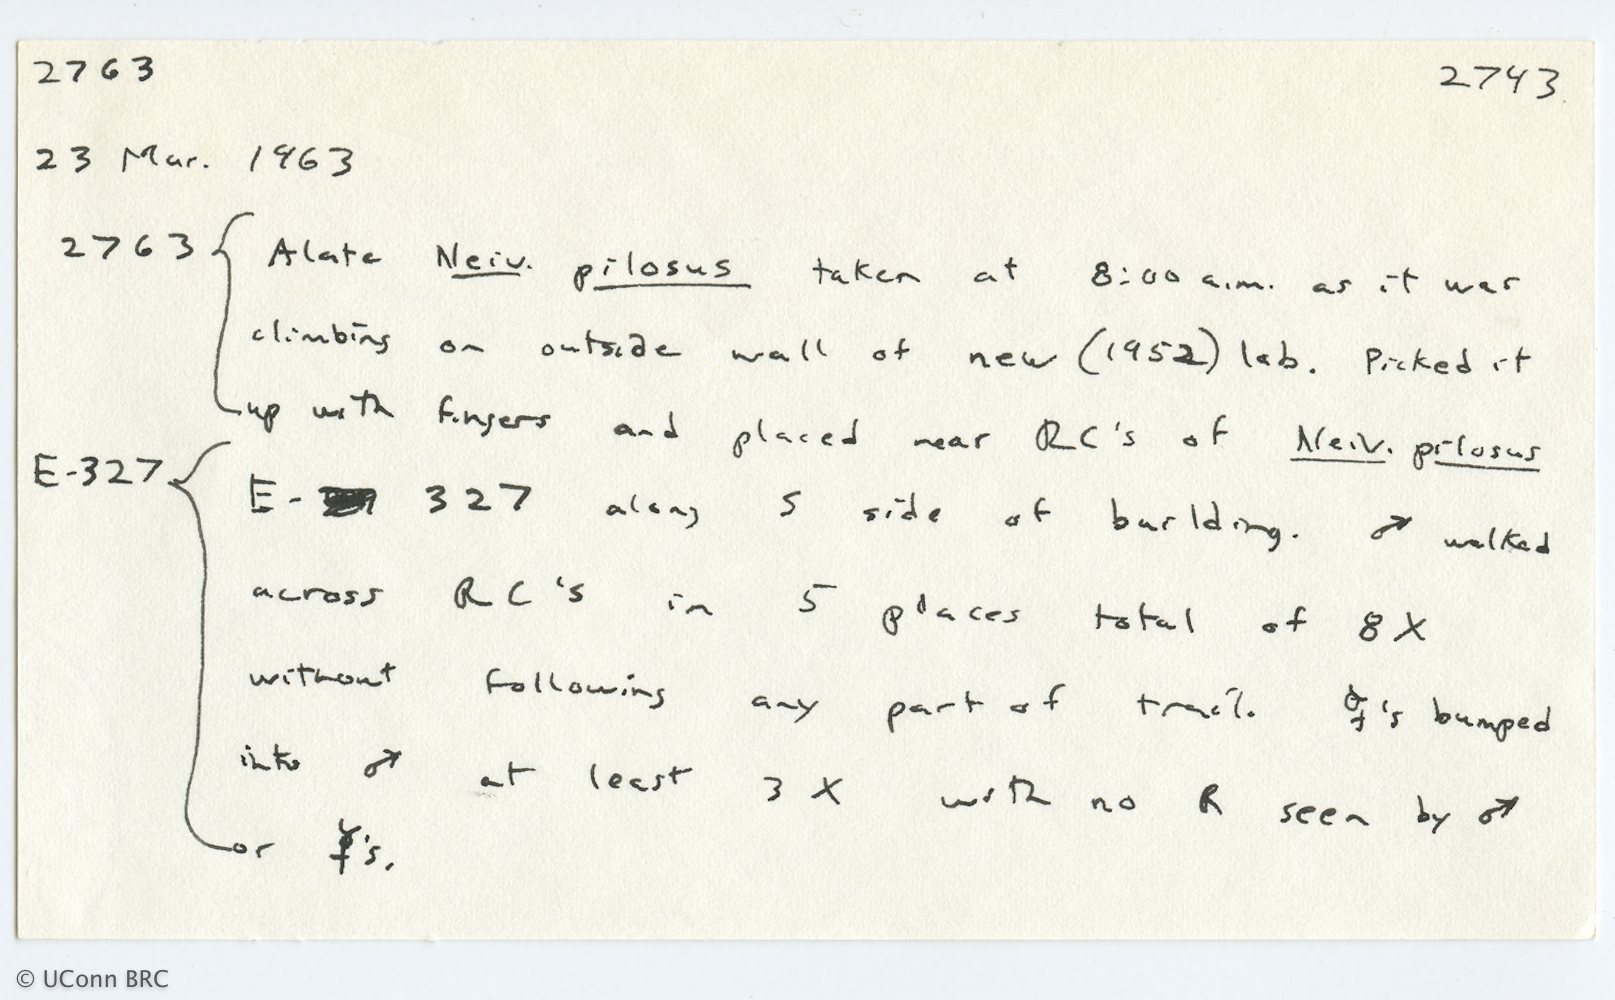 2763 2743
23 Mar. 1963
2763 { Alate Neiv. pilosus taken at 8:00 a.m. as it was
climbing on outside wall of new (1952) lab. Picked it
up with fingers and placed near RC's of Neiv. pilosus
E-327 { E- 327 along S side of building. ♂ walked
across RC's in 5 places total of 8X
without following any part of trail. ☿'s bumped
into ♂ at least 3X with no R seen by ♂
or ☿'s.
© UConn BRC